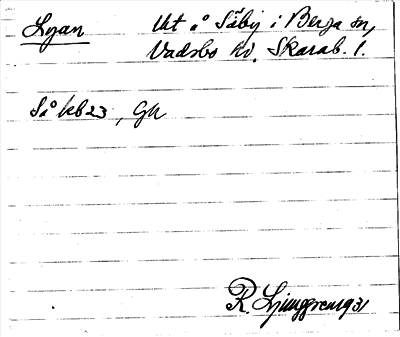 Lyan
Ut å Säby i Berga sn,
Vadsbo hd. Skarab. l.
Så kb 23, GK
R. Ljunggren 1931